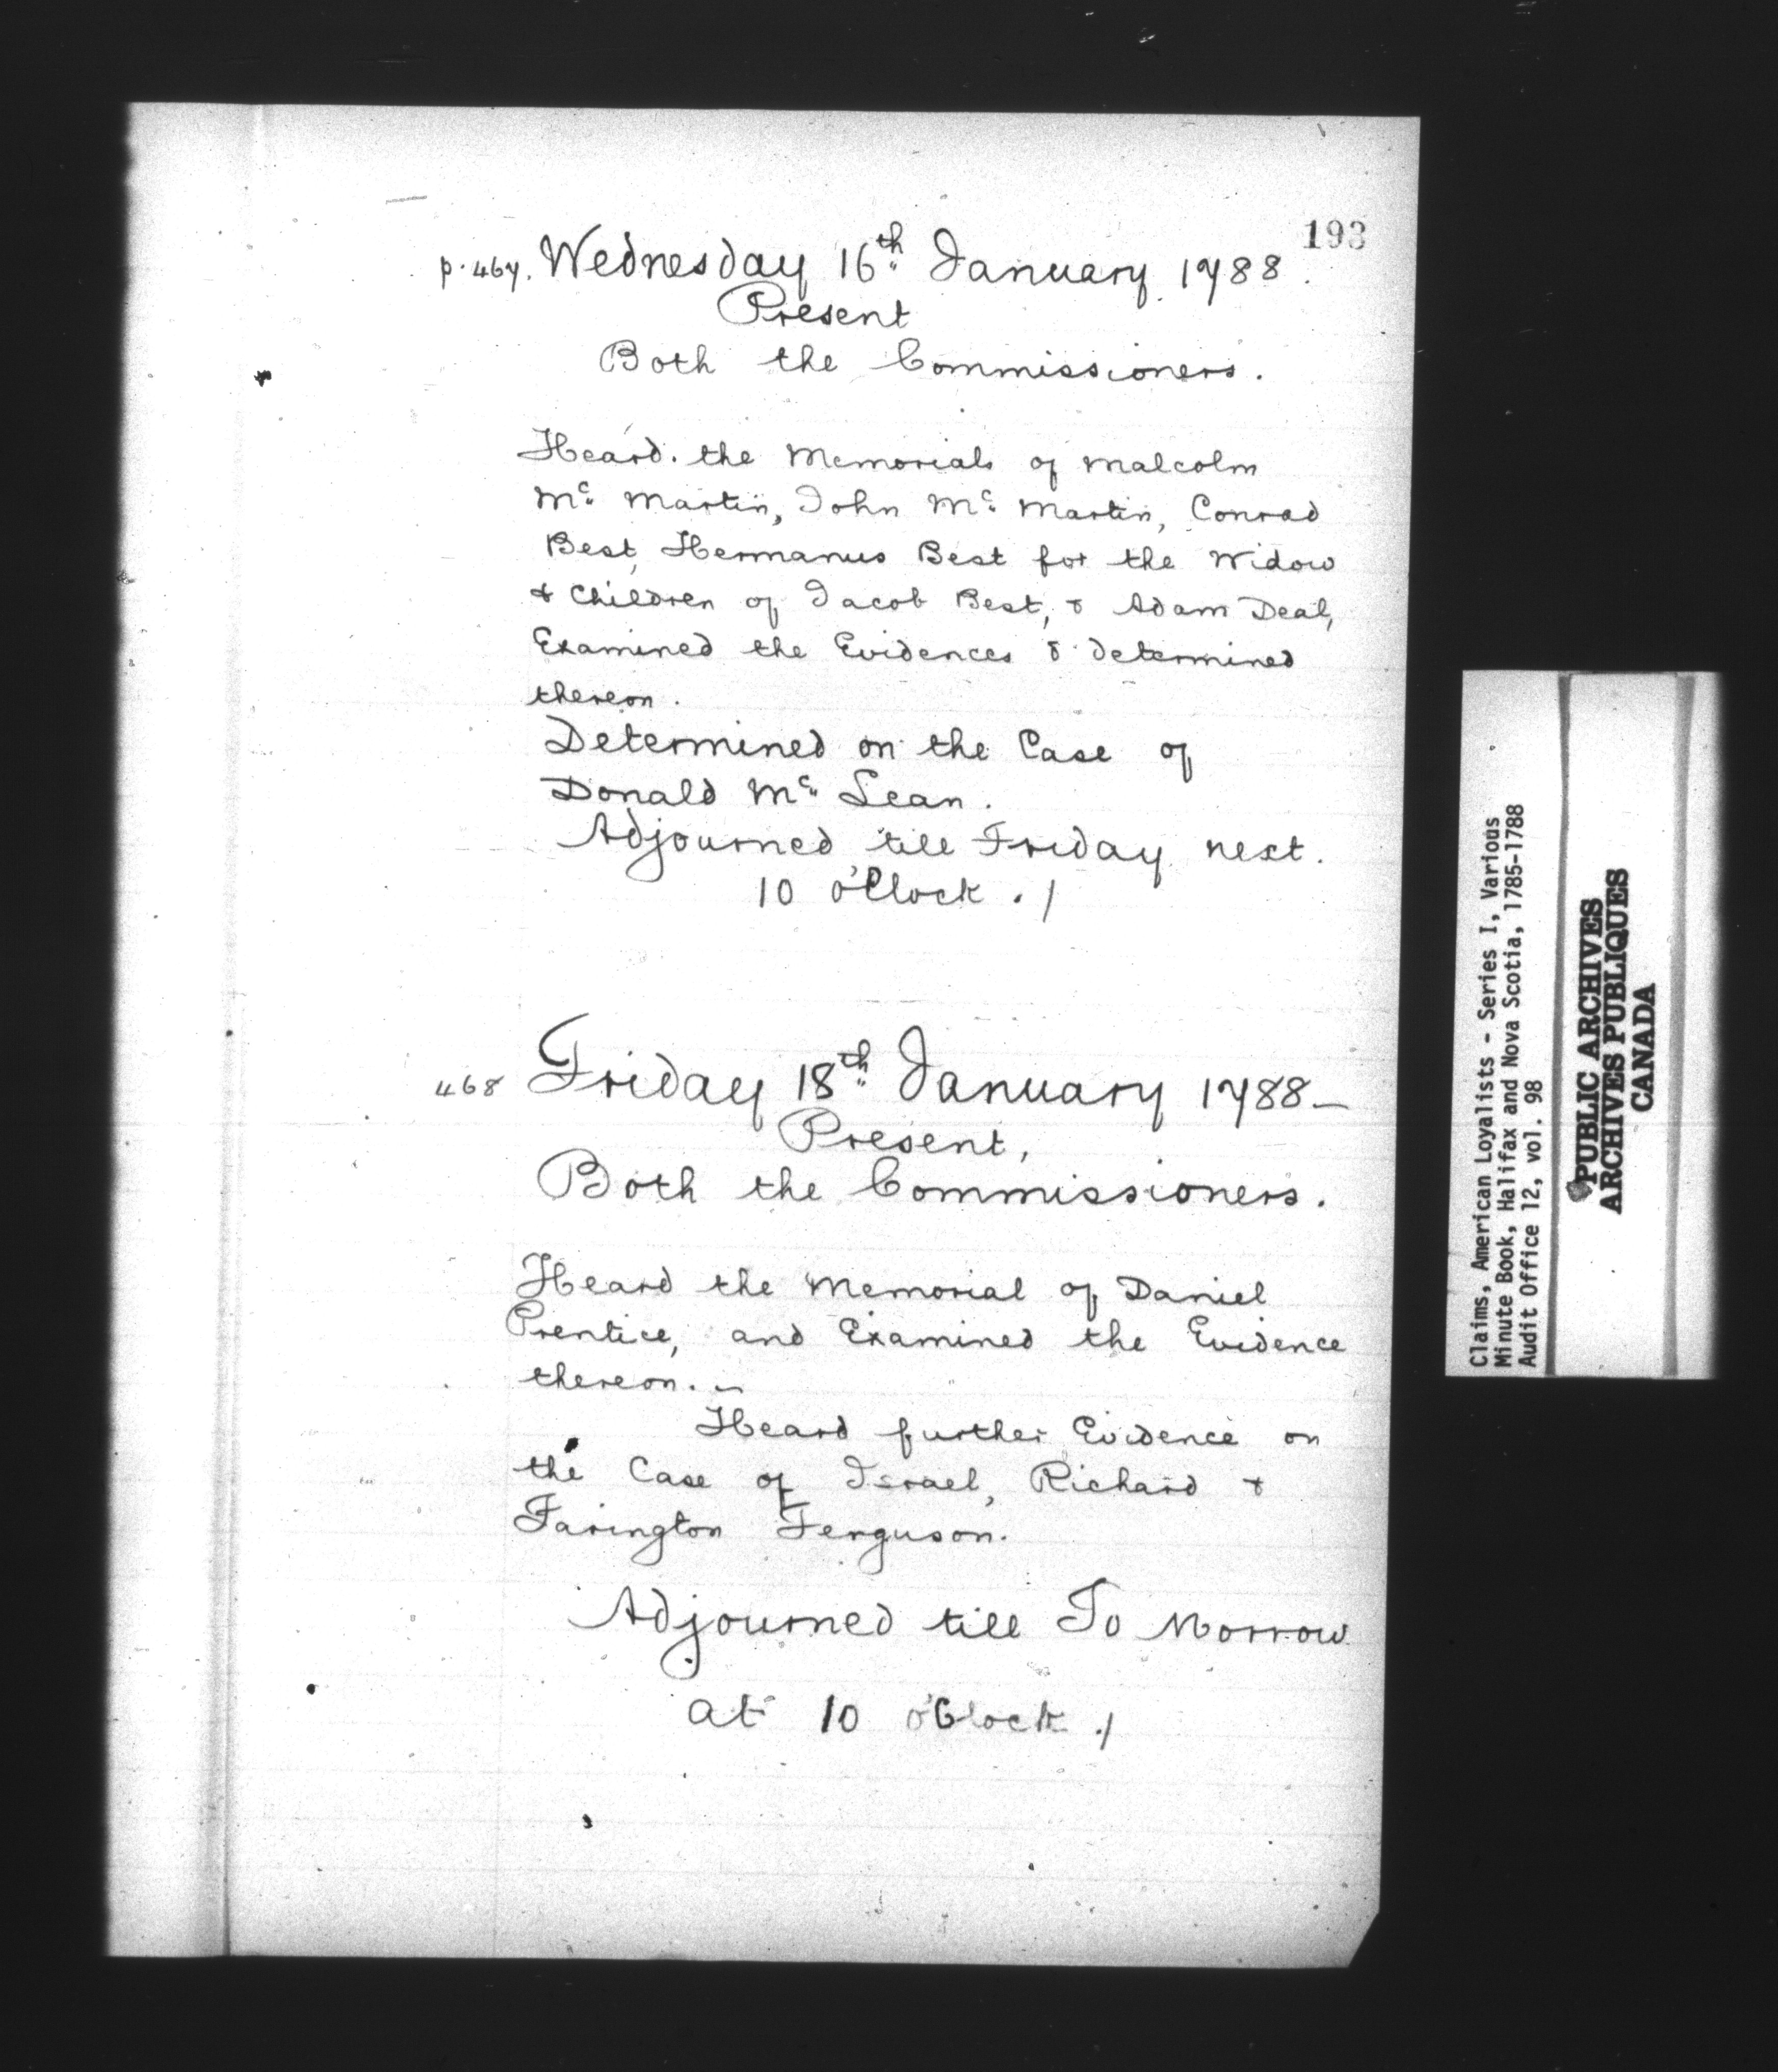 193
p. 467. Wednesday 16th January 1788.
Present
Both the Commissioners.
Heard the Memorials of Malcolm
Mc Martin, John Mc Martin, Conrad
Best, Hermanus Best for the Widow
& Children of Jacob Best, & Adam Deal,
Examined the Evidences & determined
thereon.
Determined on the Case of
Donald Mc Lean.
Adjourned till Friday next.
10 o'Clock ./
468 Friday 18th January 1788—
Present,
Both the Commissioners.
Heard the Memorial of Daniel
Prentice, and Examined the Evidence
thereon. —
Heard further Evidence on
the Case of Israel, Richard &
Farington Ferguson.
Adjourned till To Morrow
at 10 o'Clock ./
Claims, American Loyalists - Series I, Various
Minute Book, Halifax and Nova Scotia, 1785-1788
Audit Office 12, vol. 98
PUBLIC ARCHIVES
ARCHIVES PUBLIQUES
CANADA